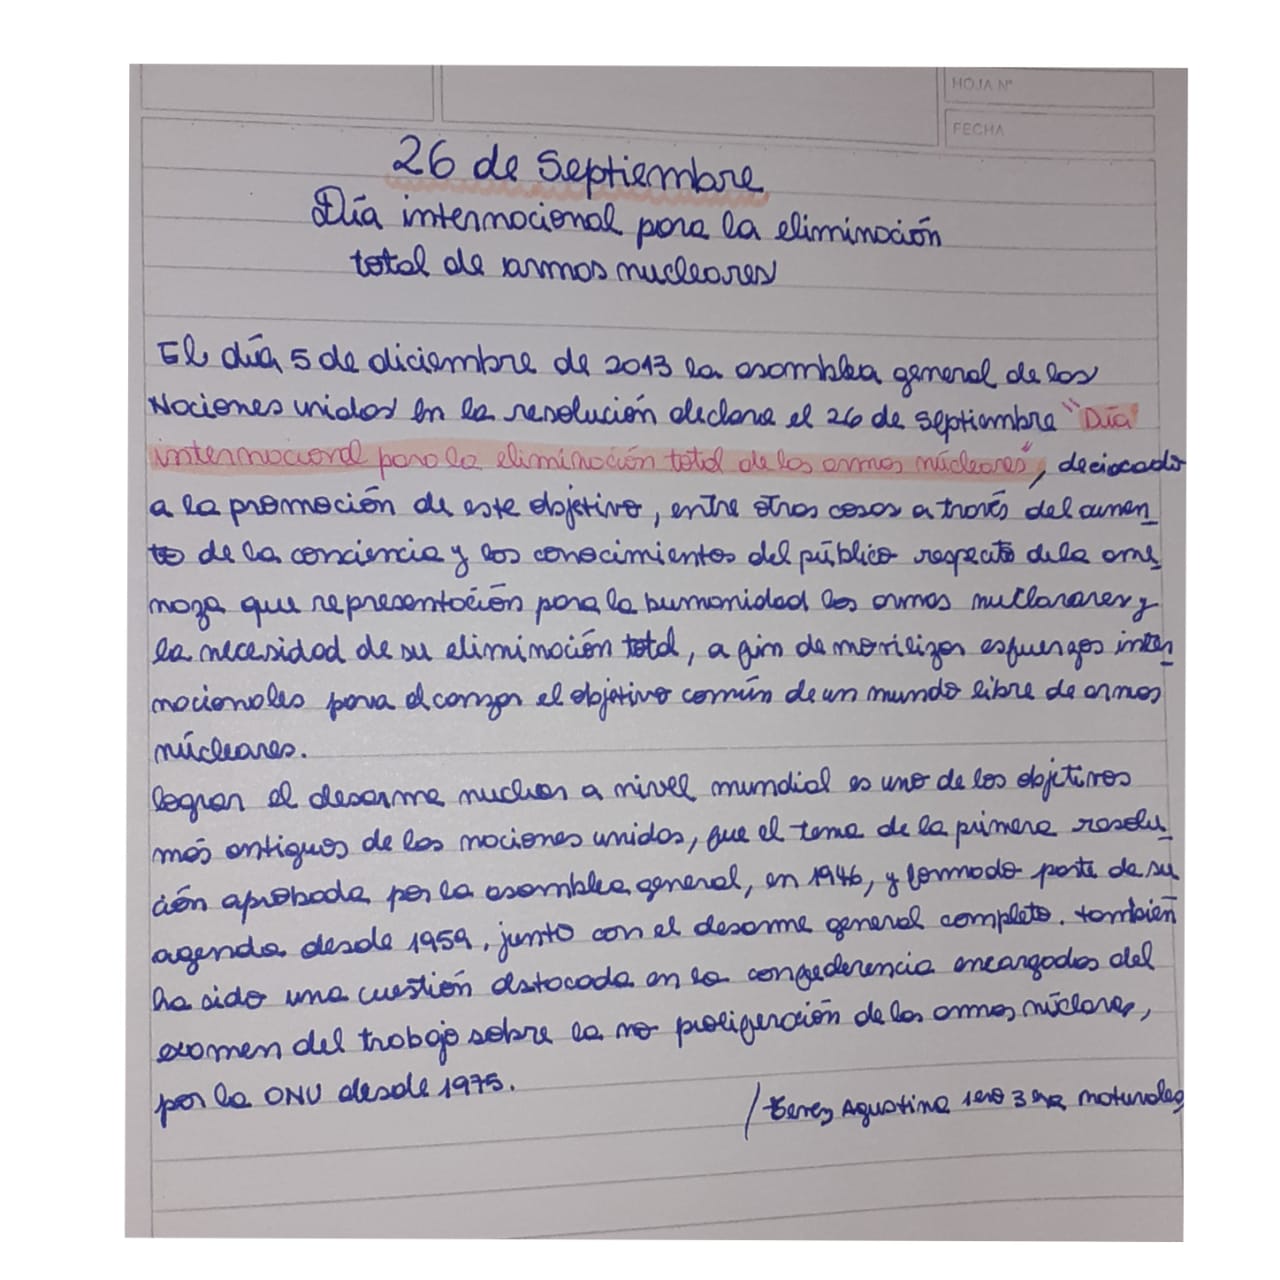 HOJA N°
FECHA
26 de Septiembre
Día internacional para la eliminación
total de armas nucleares
El día 5 de diciembre de 2013 la asamblea general de los
Naciones unidas en la resolución declara el 26 de septiembre "Día
internacional para la eliminación total de las armas núcleares", deciocado
a la promoción de este objetivo, entre otras cosas a través del aumen_
to de la conciencia y los conocimientos del público respecto de la ame_
naza que representación para la humanidad las armas nuclarares y
la necesidad de su eliminación total, a fin de movilizar esfuerzos inter_
nacionales para alcanzar el objetivo común de un mundo libre de armas
núcleares.
lograr el desarme nuclear a nivel mundial es uno de los objetivos
más antiguos de las naciones unidas, que el tema de la primera resolu_
ción aprobada por la asamblea general, en 1946, y formado parte de su
agenda desde 1959, junto con el desarme general completo. también
ha sido una cuestión destacada en la confederencia encargadas del
examen del trabajo sobre la no proliferación de las armas núclares,
por la ONU desde 1975.
/ Agustina 1ero 3era naturales